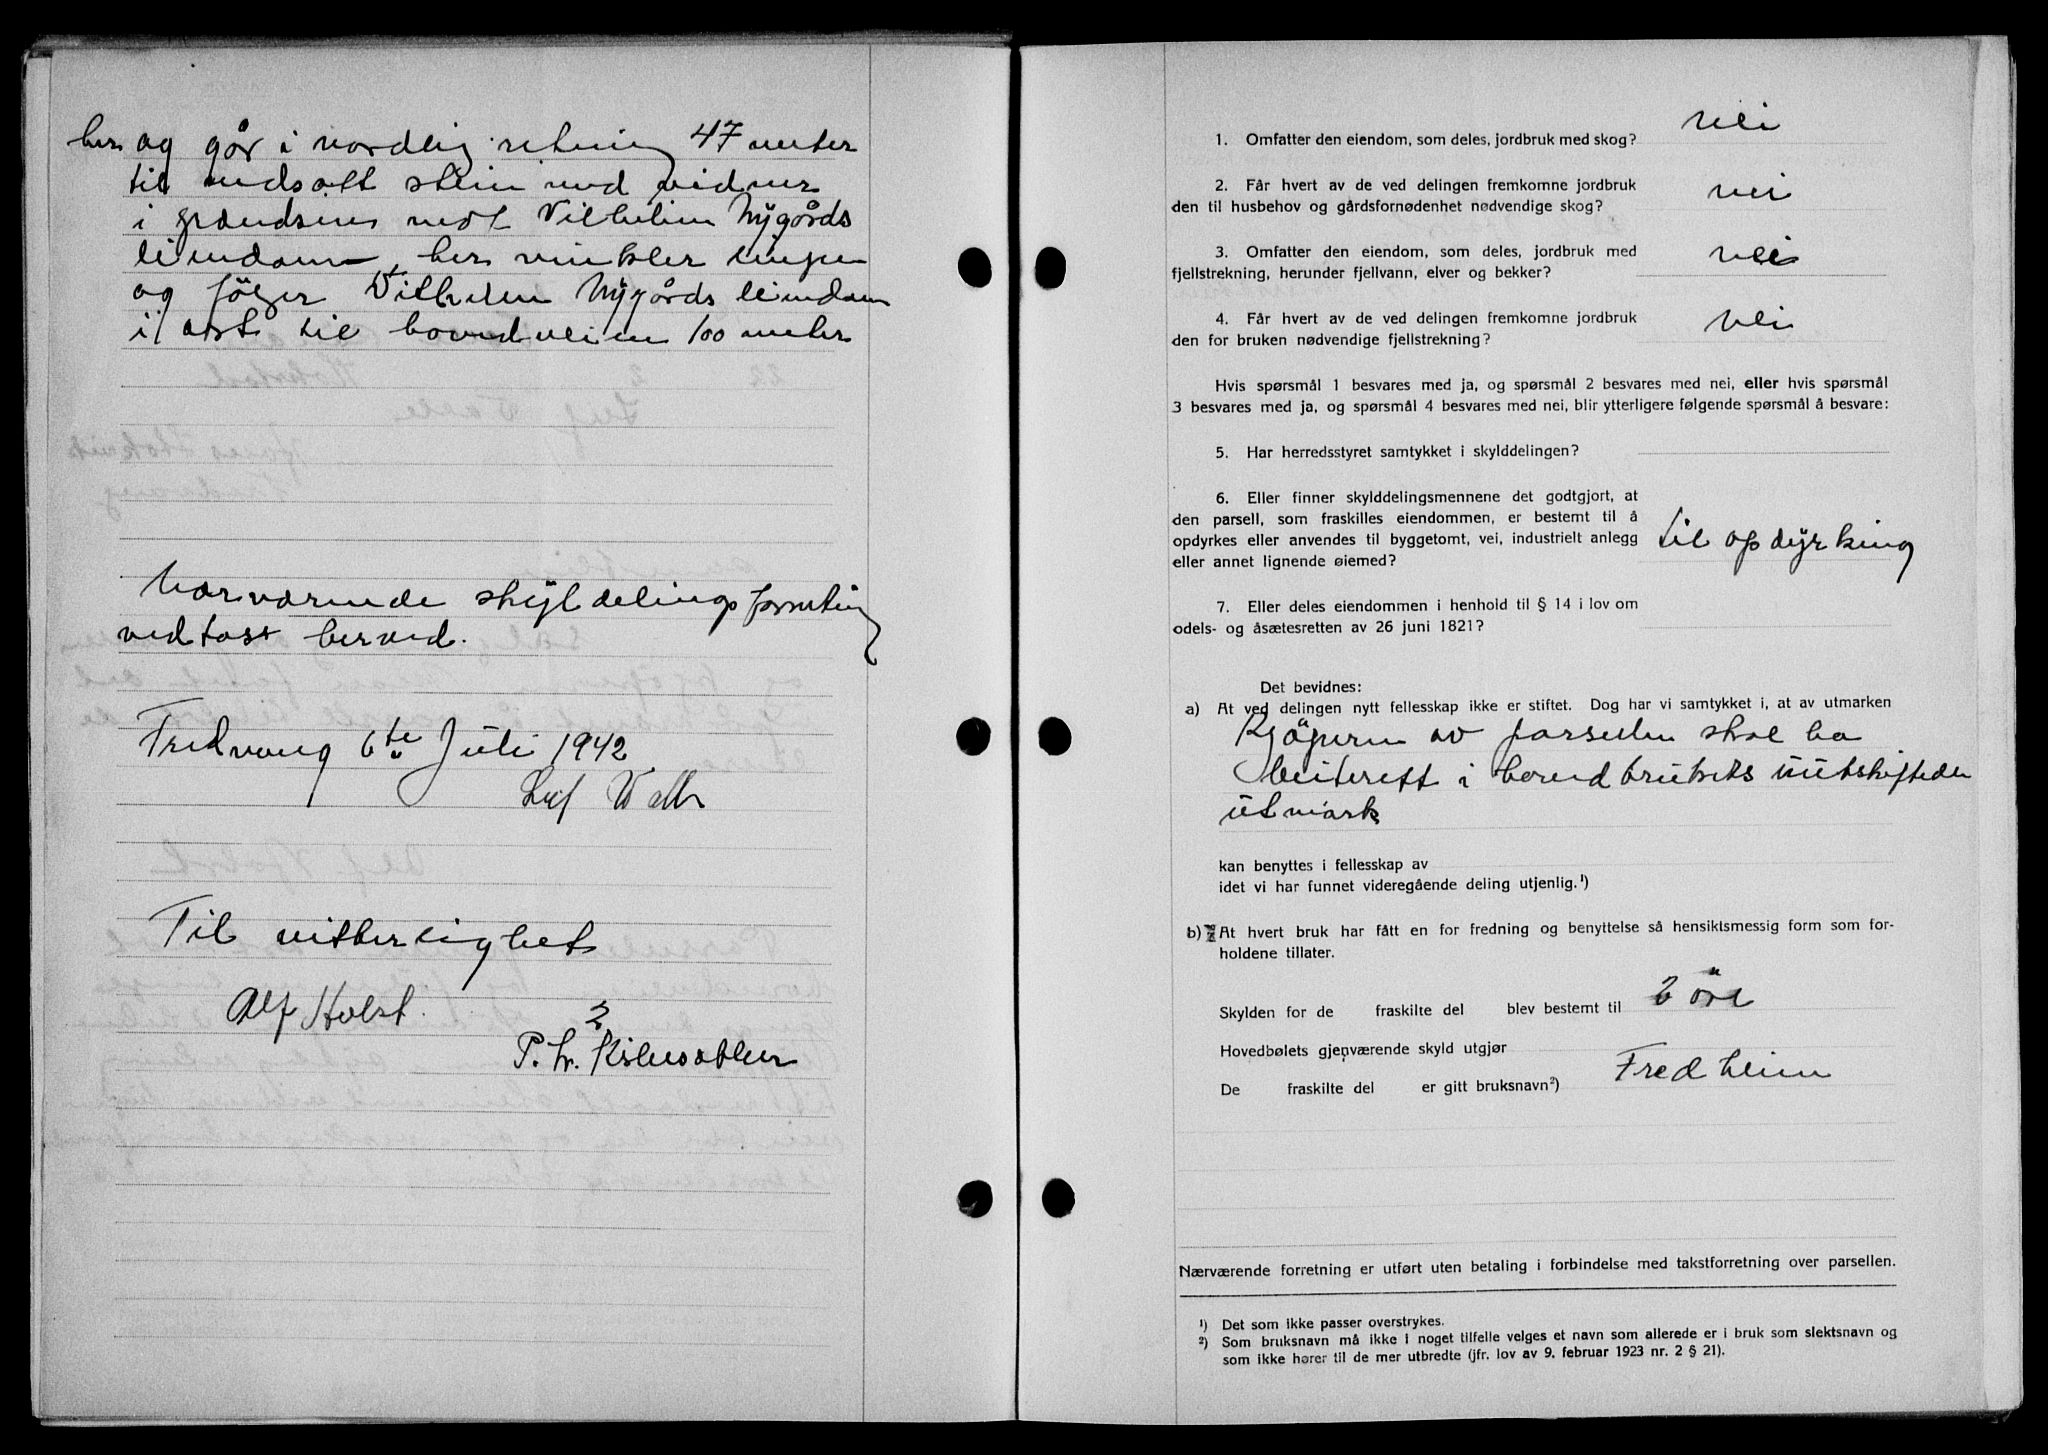 her og går i nordlig retning 47 meter
til nedsatt stein med vidner
i grændsene mot Vilhelm Nygårds
eiendom, her vinkler linjen
og følger Vilhelm Nygårds eiendom
i øst til hovedveien 100 meter
Nærværende skylddelingsforretning
vedtas herved.
Fredvang 6te Juli 1942
Leif Valle
Til vitterlighet
Alf Holst.
P. Kr. Kristensen
1. Omfatter den eiendom, som deles, jordbruk med skog? nei
2. Får hvert av de ved delingen fremkomne jordbruk
den til husbehov og gårdsfornødenhet nødvendige skog? nei
3. Omfatter den eiendom, som deles, jordbruk med
fjellstrekning, herunder fjellvann, elver og bekker? nei
4. Får hvert av de ved delingen fremkomne jordbruk
den for bruken nødvendige fjellstrekning? nei
Hvis spørsmål 1 besvares med ja, og spørsmål 2 besvares med nei, eller hvis spørsmål
3 besvares med ja, og spørsmål 4 besvares med nei, blir ytterligere følgende spørsmål å besvare:
5. Har herredsstyret samtykket i skylddelingen?
6. Eller finner skylddelingsmennene det godtgjort, at
den parsell, som fraskilles eiendommen, er bestemt til å
opdyrkes eller anvendes til byggetomt, vei, industrielt anlegg til opdyrking
eller annet lignende øiemed?
7. Eller deles eiendommen i henhold til § 14 i lov om
odels- og åsætesretten av 26 juni 1821?
Det bevidnes:
a) At ved delingen nytt fellesskap ikke er stiftet. Dog har vi samtykket i, at av utmarken
Kjøperen av parsellen skal ha
beiterett i hovedbrukets uutskiftede
utmark
kan benyttes i fellesskap av
idet vi har funnet videregående deling utjenlig.¹)
b) At hvert bruk har fått en for fredning og benyttelse så hensiktsmessig form som for-
holdene tillater.
Skylden for de fraskilte del blev bestemt til 2 øre
Hovedbølets gjenværende skyld utgjør
De fraskilte del er gitt bruksnavn²) Fredheim
Nærværende forretning er utført uten betaling i forbindelse med takstforretning over parsellen.
¹) Det som ikke passer overstrykes.
²) Som bruksnavn må ikke i noget tilfelle velges et navn som allerede er i bruk som slektsnavn og
som ikke hører til de mer utbredte (jfr. lov av 9. februar 1923 nr. 2 § 21).